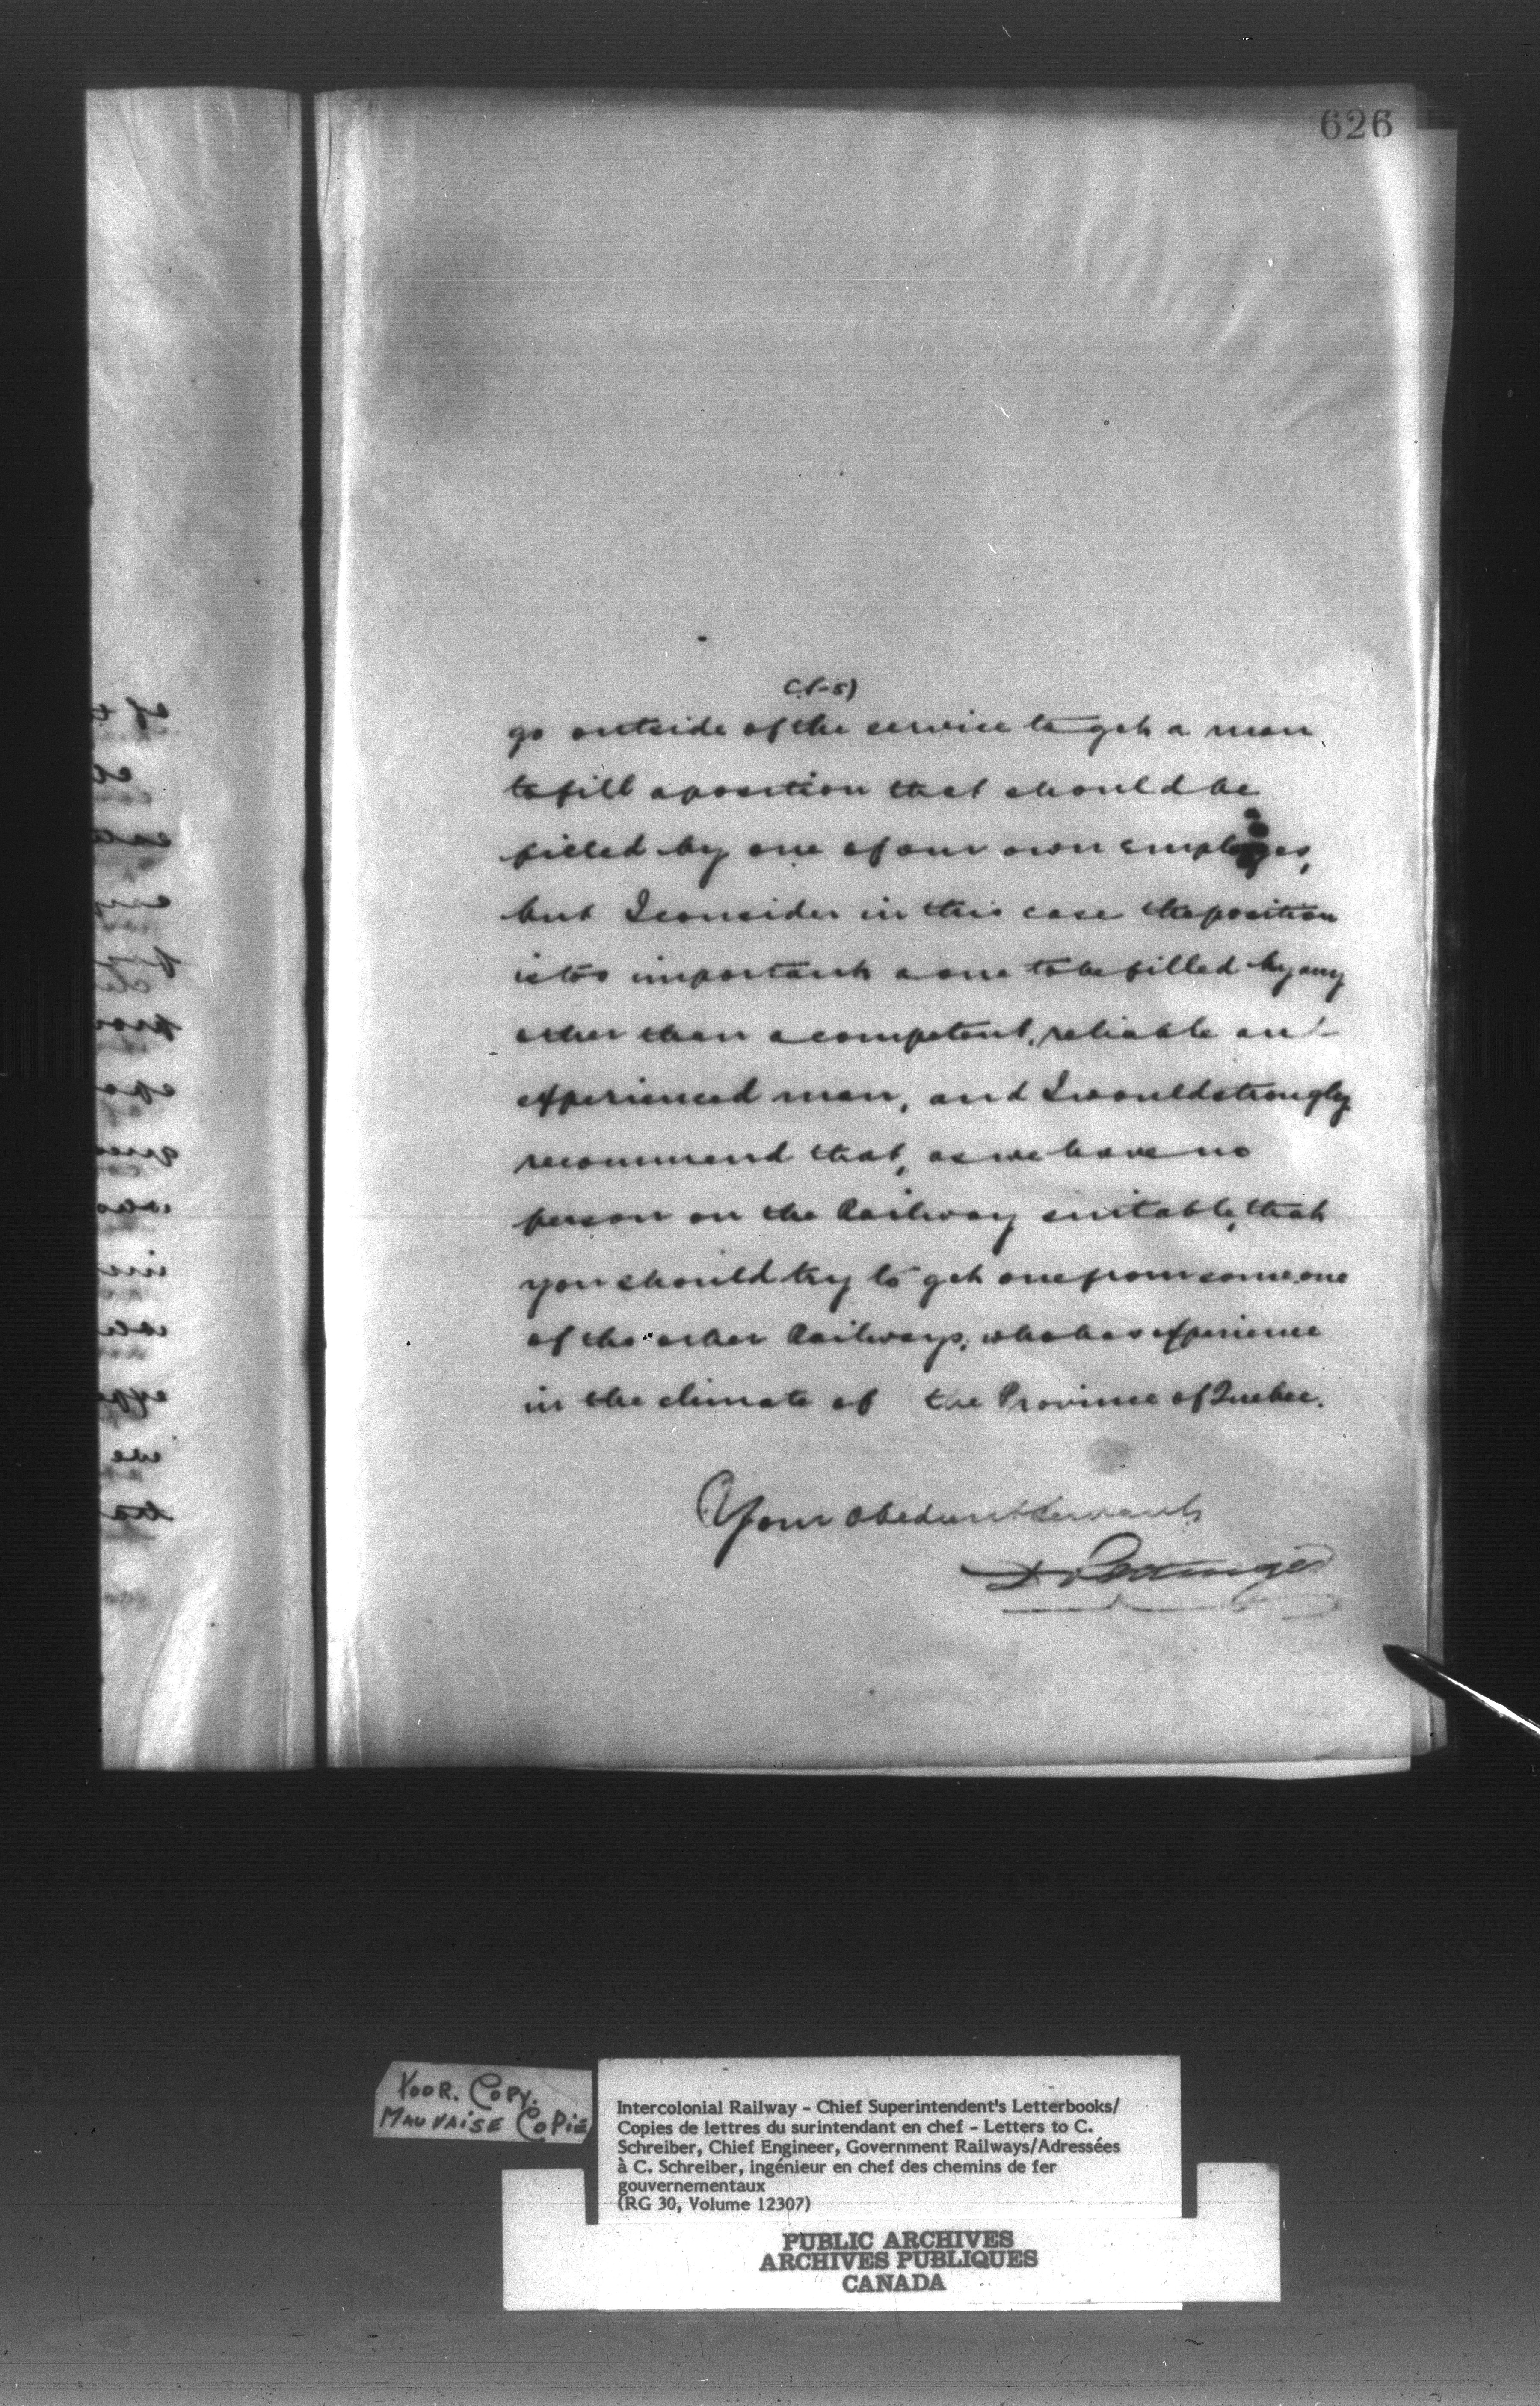 626
go outside of the service to get a man
to fill a position that should be
filled by one of our own employes,
but I consider in this case the position
is too important a one to be filled by any
other than a competent, reliable and
experienced man, and I would strongly
recommend that, as we have no
person on the Railway suitable, that
you should try to get one from some one
of the other Railways, who has experience
in the climate of the Province of Quebec.
Your obedient servant
D Pottinger
POOR. COPY.
MAUVAISE COPIE
Intercolonial Railway - Chief Superintendent's Letterbooks/
Copies de lettres du surintendant en chef - Letters to C.
Schreiber, Chief Engineer, Government Railways/Adressées
à C. Schreiber, ingénieur en chef des chemins de fer
gouvernementaux
(RG 30, Volume 12307)
PUBLIC ARCHIVES
ARCHIVES PUBLIQUES
CANADA